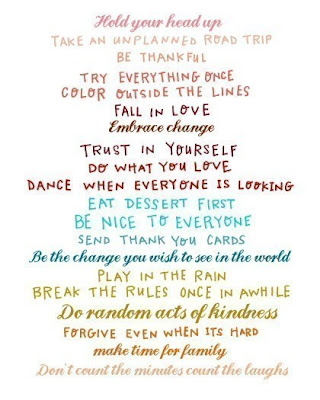 Hold your head up
TAKE AN UNPLANNED ROAD TRIP
BE THANKFUL
TRY EVERYTHING ONCE
COLOR OUTSIDE THE LINES
FALL IN LOVE
Embrace change
TRUST IN YOURSELF
DO WHAT YOU LOVE
DANCE WHEN EVERYONE IS LOOKING
EAT DESSERT FIRST
BE NICE TO EVERYONE
SEND THANK YOU CARDS
Be the change you wish to see in the world
PLAY IN THE RAIN
BREAK THE RULES ONCE IN AWHILE
Do random acts of kindness
FORGIVE EVEN WHEN ITS HARD
make time for family
Don't count the minutes count the laughs